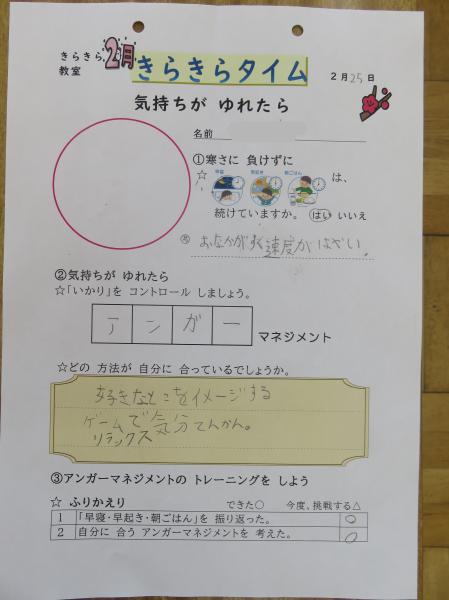 きらきら
教室
2月
きらきらタイム
2月25日
気持ちが ゆれたら
名前
①寒さに 負けずに
☆ 早寝 早起き 朝ごはん は、
続けていますか。 はい いいえ
速度がはやい。
②気持ちが ゆれたら
☆「いかり」を コントロール しましょう。
アンガー マネジメント
☆どの 方法が 自分に 合っているでしょうか。
好きなとこをイメージする
ゲームで気分てんかん。
リラックス
③アンガーマネジメントの トレーニングを しよう
☆ ふりかえり できた○ 今度、挑戦する△
1 「早寝・早起き・朝ごはん」を 振り返った。 ○
2 自分に 合う アンガーマネジメントを 考えた。 ○